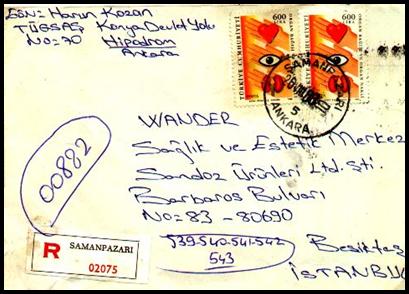 GÖN: Harun Kozan
TÜGSAŞ Konya Devlet Yolu
NO=70 Hipodrom
Ankara
600
LİRA
600
LİRA
TÜRKİYE CUMHURİYETİ
SAMANPAZARI
5
ANKARA
WANDER
Sağlık ve Estetik Merkez
Sandoz Ürünleri Ltd. Şti.
Barbaros Bulvarı
NO=83 - 80690
539-540-541-542
543
Beşiktaş
İSTANBUL
00882
R SAMANPAZARI
02075